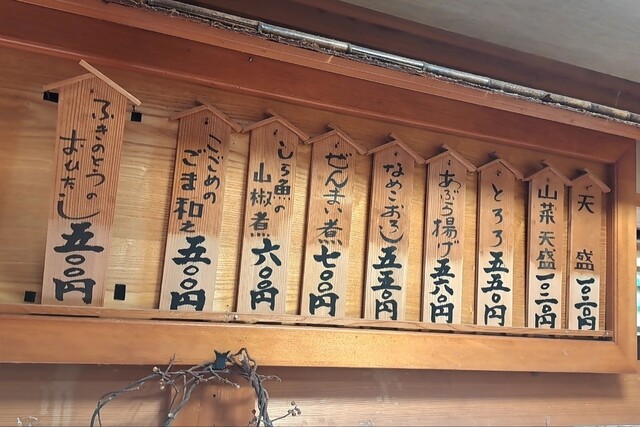 天盛
山菜天盛 一〇二〇円
とろろ 五五〇円
あぶら揚げ 五六〇円
なめこおろし 五五〇円
ぜんまい煮 七〇〇円
しろ魚の
山椒煮 六〇〇円
こごめの
ごま和え 五〇〇円
ふきのとうの
おひたし 五〇〇円